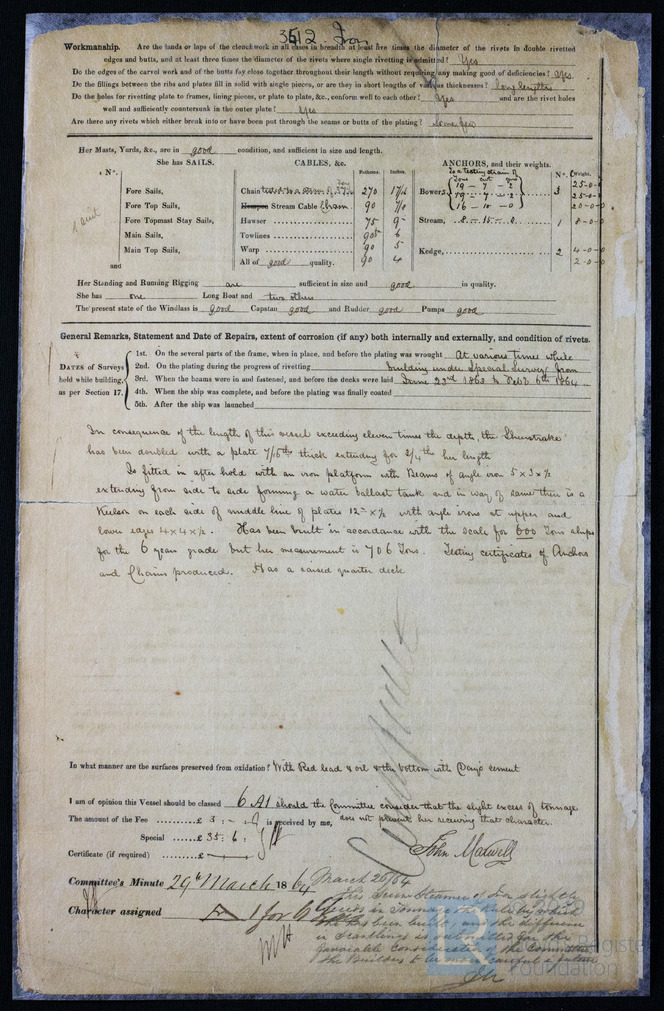 3612 Iron
Workmanship. Are the lands or laps of the clenchwork in all cases in breadth at least five times the diameter of the rivets in double rivetted
edges and butts, and at least three times the diameter of the rivets where single rivetting is admitted? Yes
Do the edges of the carvel work and of the butts fay close together throughout their length without requiring any making good of deficiencies? Yes
Do the fillings between the ribs and plates fill in solid with single pieces, or are they in short lengths of various thicknesses? long lengths
Do the holes for rivetting plate to frames, lining pieces, or plate to plate, &c., conform well to each other? Yes and are the rivet holes
well and sufficiently countersunk in the outer plate? Yes
Are there any rivets which either break into or have been put through the seams or butts of the plating? Some few
Her Masts, Yards, &c., are in good condition, and sufficient in size and length.
She has SAILS. CABLES, &c. ANCHORS, and their weights.
N°. Fathoms. Inches. N°. Weight.
Fore Sails,
Fore Top Sails,
Fore Topmast Stay Sails,
Main Sails,
Main Top Sails,
and
1 suit
Chain 270
Hempen Stream Cable Chain 90 7/8
Hawser 75 9
Towlines 90 6
Warp 90 5
All of good quality. 90 4
To a testing strain of
Tons cwt qrs
Bowers 19 - 7 - 2
19 - 7 - 2
16 - 10 - 0
3
Stream, 8 - 15 - 0 1 8-0-0
Kedge, 2 4-0-0
2-0-0
Her Standing and Running Rigging are sufficient in size and good in quality.
She has one Long Boat and two others
The present state of the Windlass is Good Capstan good and Rudder good Pumps good
General Remarks, Statement and Date of Repairs, extent of corrosion (if any) both internally and externally, and condition of rivets.
DATES of Surveys held while building, as per Section 17.
1st. On the several parts of the frame, when in place, and before the plating was wrought At various times while
2nd. On the plating during the progress of rivetting building under Special Survey from
3rd. When the beams were in and fastened, and before the decks were laid June 22nd 1863 to Feb. 6th 1864
4th. When the ship was complete, and before the plating was finally coated
5th. After the ship was launched
In consequence of the length of this vessel exceeding eleven times the depth, the Sheerstrake
has been doubled with a plate 7/16th thick extending for 3/4th her length
Is fitted in after hold with an iron platform with Beams of angle iron 5 x 3 x 1/2
extending from side to side forming a water ballast tank and in way of same there is a
Keelson on each side of middle line of plates 12 x 1/2 with angle irons at upper and
lower edges 4 x 4 x 1/2. Has been built in accordance with the scale for 600 Tons ships
for the 6 year grade but her measurement is 706 Tons. Testing certificates of Anchors
and Chains produced. Has a raised quarter deck
In what manner are the surfaces preserved from oxidation? With Red lead & oil & the bottom with Day's cement
I am of opinion this Vessel should be classed 6 A1 should the Committee consider that the slight excess of tonnage
does not prevent her receiving that character.
The amount of the Fee £ 3 : - , - is received by me,
Special £ 35 : 6 :
Certificate (if required) £
John Madwell
Committee's Minute 29th March 1864
Character assigned A 1 for 6
March 26/64
This Screw Steamer of Iron slightly
exceeds in Tonnage the Rule by which
she has been built, and the difference
in Scantlings is submitted for the
favorable consideration of the Committee
the Builders to be more careful in future
Register
Foundation